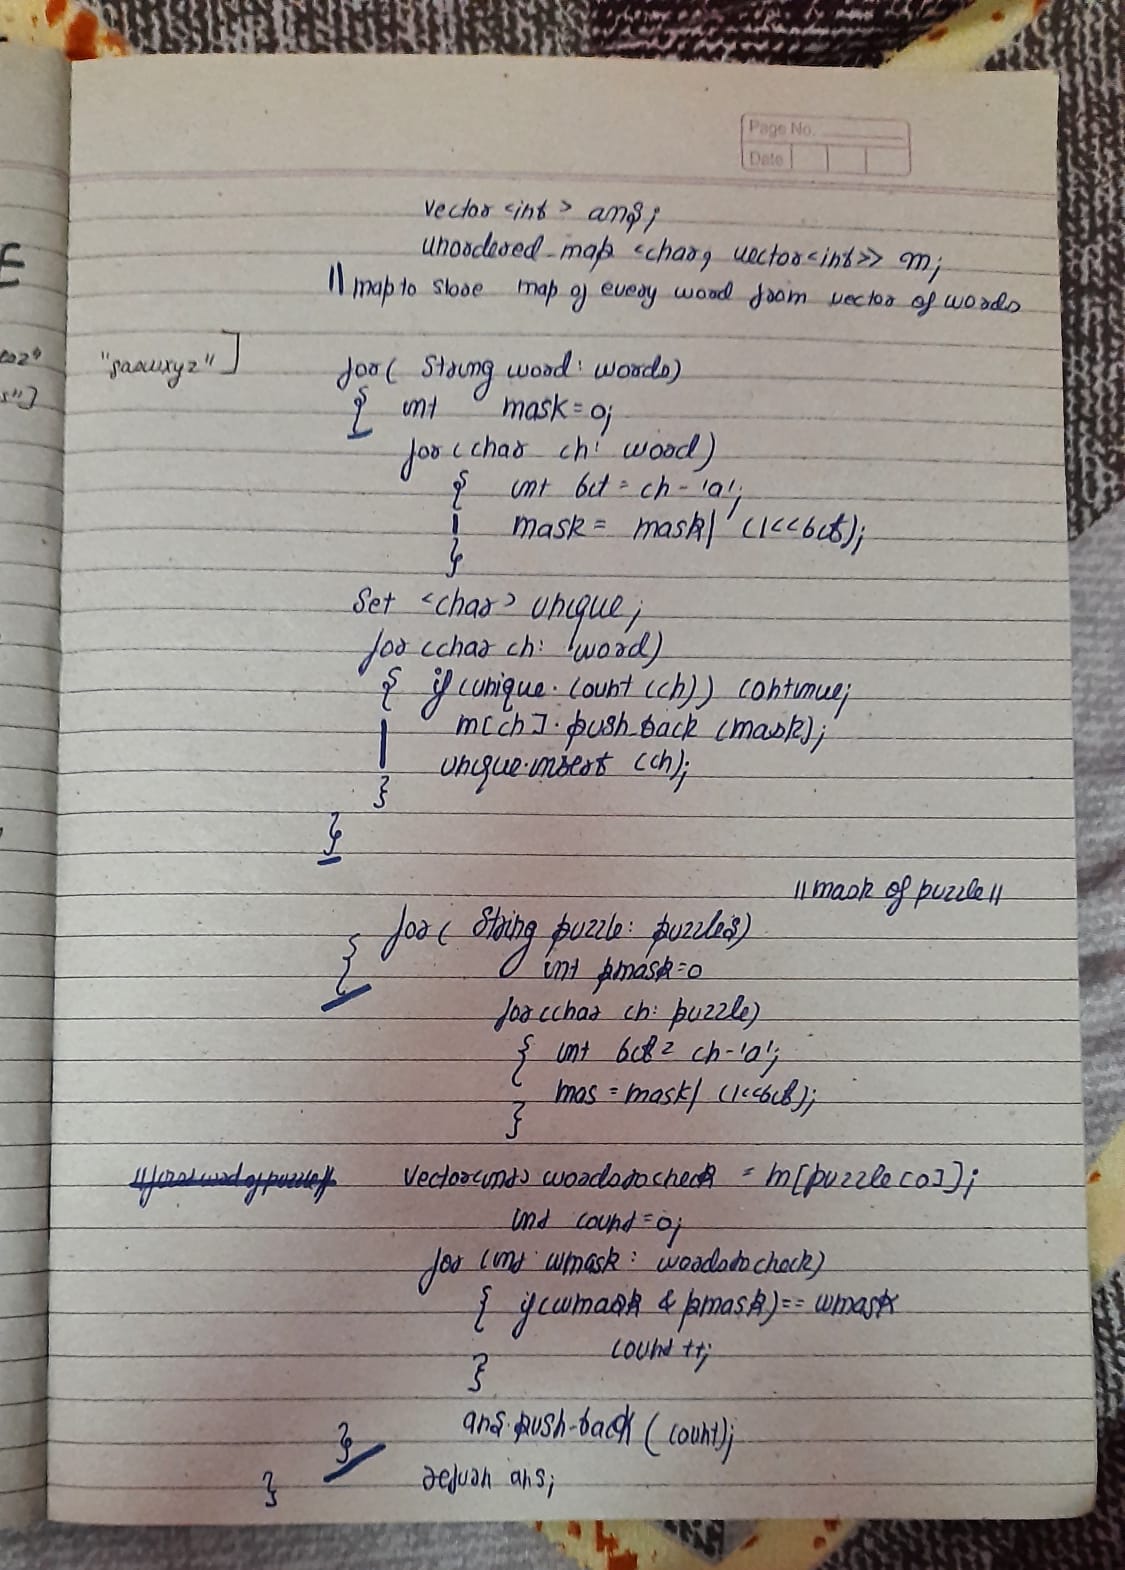 Page No.
Date
vector <int> ans;
unordered_map <char, vector<int>> m;
// map to store map of every word from vector of words
"]
]
for( string word: words)
{ int mask = 0;
for (char ch: word)
{ int bit = ch - 'a';
mask = mask | (1<<bit);
}
Set <char> unique;
for (char ch: word)
{ if (unique.count (ch)) continue;
m[ch].push_back (mask);
unique.insert (ch);
}
}
// mask of puzzle //
for( string puzzle: puzzles)
{ int pmask=0
for (char ch: puzzle)
{ int bit = ch-'a';
mas = mask | (1<<bit);
}
vector<int> wordstocheck = m[puzzle[0]];
int count=0;
for (int wmask: wordstocheck)
{ if (wmask & pmask) == wmask
count ++;
}
ans.push-back (count);
}
return ans;
}